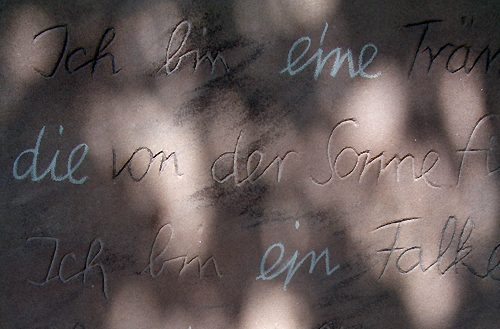 Ich bin eine Trän
die von der Sonne f
Ich bin ein Falke